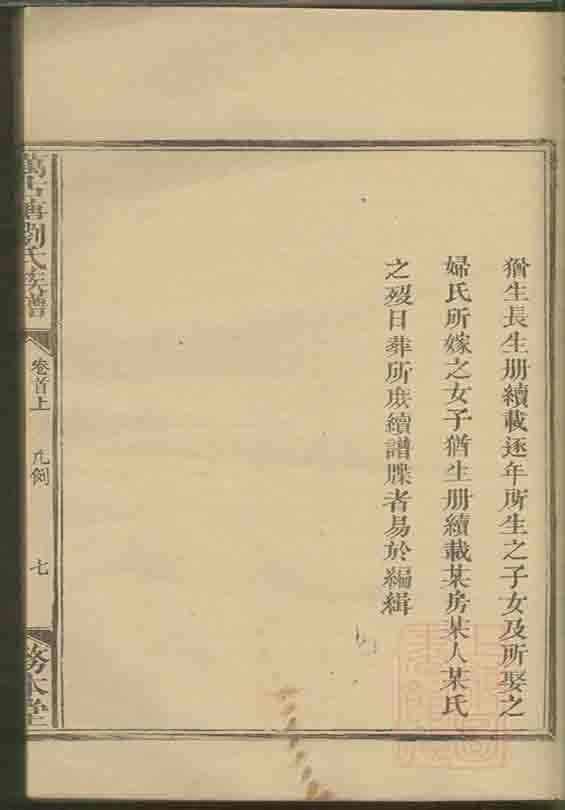 猶生長生册續載逐年所生之子女及所娶之
婦氏所嫁之女子猶生册續載某房某人某氏
之歿日葬所庶續譜牒者易於編緝
劉氏族譜
卷首上
凡例
七
務本堂